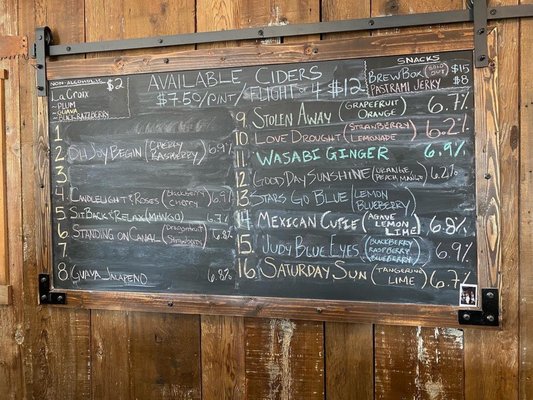 NON-ALCOHOLIC $2
LaCroix
~PLUM
~GUAVA
~BLACK-RAZZBERRY
AVAILABLE CIDERS
$7.50/PINT/FLIGHT OF 4 $12
SNACKS
BREWBOX $15
PASTRAMI JERKY $8
1
2 OH JOY BEGIN (CHERRY RASPBERRY) 6.9%
3
4 CANDLELIGHT & ROSES (BLACKBERRY CHERRY) 6.9%
5 SIT BACK & RELAX (MANGO) 6.7%
6 STANDING ON CANAL (DRAGONFRUIT STRAWBERRY) 6.8%
7
8 GUAVA JALAPEÑO 6.8%
9. STOLEN AWAY (GRAPEFRUIT ORANGE) 6.7%
10 LOVE DROUGHT (STRAWBERRY LEMONADE) 6.2%
11 WASABI GINGER 6.9%
12 GOOD DAY SUNSHINE (ORANGE, PEACH, MANGO) 6.2%
13 STARS GO BLUE (LEMON BLUEBERRY)
14 MEXICAN CUTIE (AGAVE LEMON LIME) 6.8%
15 JUDY BLUE EYES (BLACKBERRY RASPBERRY BLUEBERRY) 6.9%
16 SATURDAY SUN (TANGERINE LIME) 6.7%